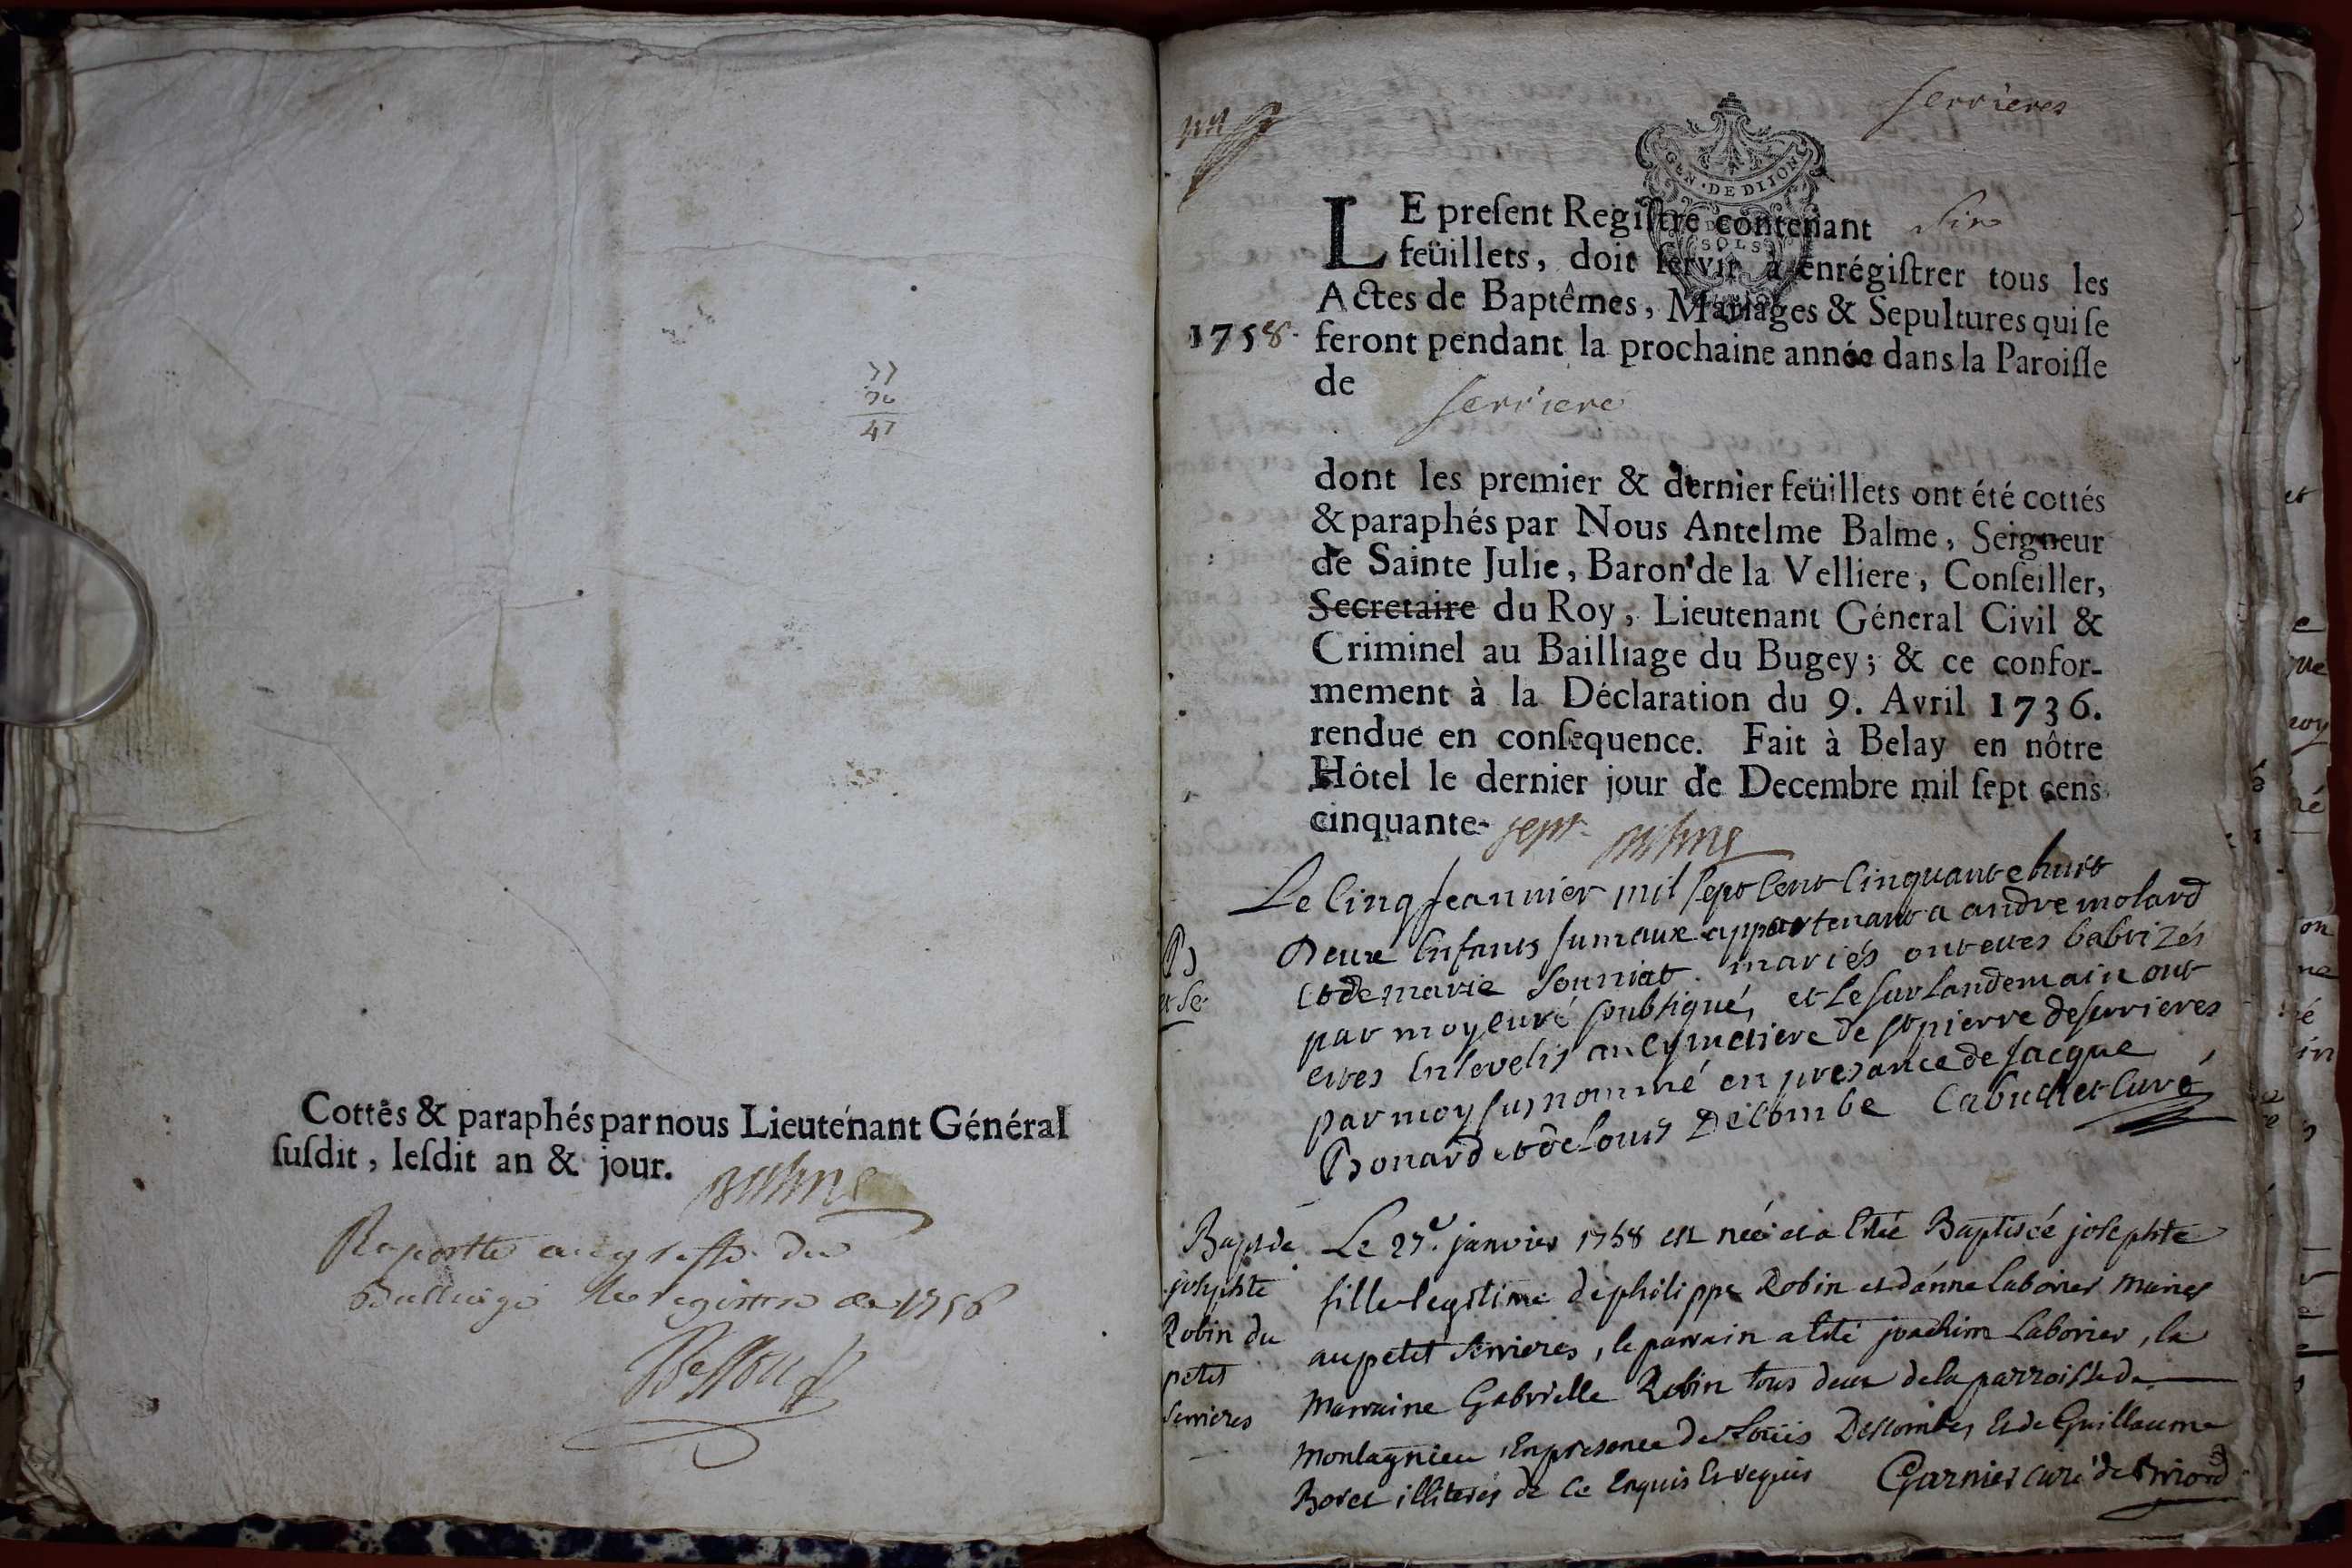 77
30
47
Cottés & paraphés par nous Lieutenant Général
susdit, lesdit an & jour.
Balme
Raporté au greffe du
Bailliage le registre de 1756
serrieres
GEN · DE DIJON
SOLS
LE preſent Regiſtre contenant six
feüillets, doit ſervir à enrégiſtrer tous les
Actes de Baptêmes, Mariages & Sepultures qui ſe
1758. feront pendant la prochaine année dans la Paroiſſe
de
serriere
dont les premier & dernier feüillets ont été cottés
& paraphés par Nous Antelme Balme, Seigneur
de Sainte Julie, Baron de la Velliere, Conſeiller,
Secretaire du Roy, Lieutenant Géneral Civil &
Criminel au Bailliage du Bugey; & ce confor-
mement à la Déclaration du 9. Avril 1736.
rendue en conſequence. Fait à Belay en nôtre
Hôtel le dernier jour de Decembre mil ſept cens
cinquante- sept Balme
Le cinq jeanvier mil sept cent cinquante huit
B Deux enfants jumaux appartenant a andre molard
et de marie souniat mariés ont etes babtizés
et se par moy curé soubsigné, et le surlandemain ont
etes ensevelis au cymetiere de st pierre de serrieres
par moy susnommé en presance de jacque
Bonard et de Louis Decombe Cabuchet curé
Bapt de Le 27e. janvier 1758 est née et a étée Baptisée josephte
josephte fille legitime de philippe Robin et d'anne Laborier mariés
Robin du au petit serrieres, le parrain a été joachim Laborier, la
petit marraine Gabrielle Robin tous deux de la parroisse de
serrieres montagnieu, En presence de Loüis Descombes et de Guillaume
Boret illiterés de ce enquis et requis Garnier curé de Briord